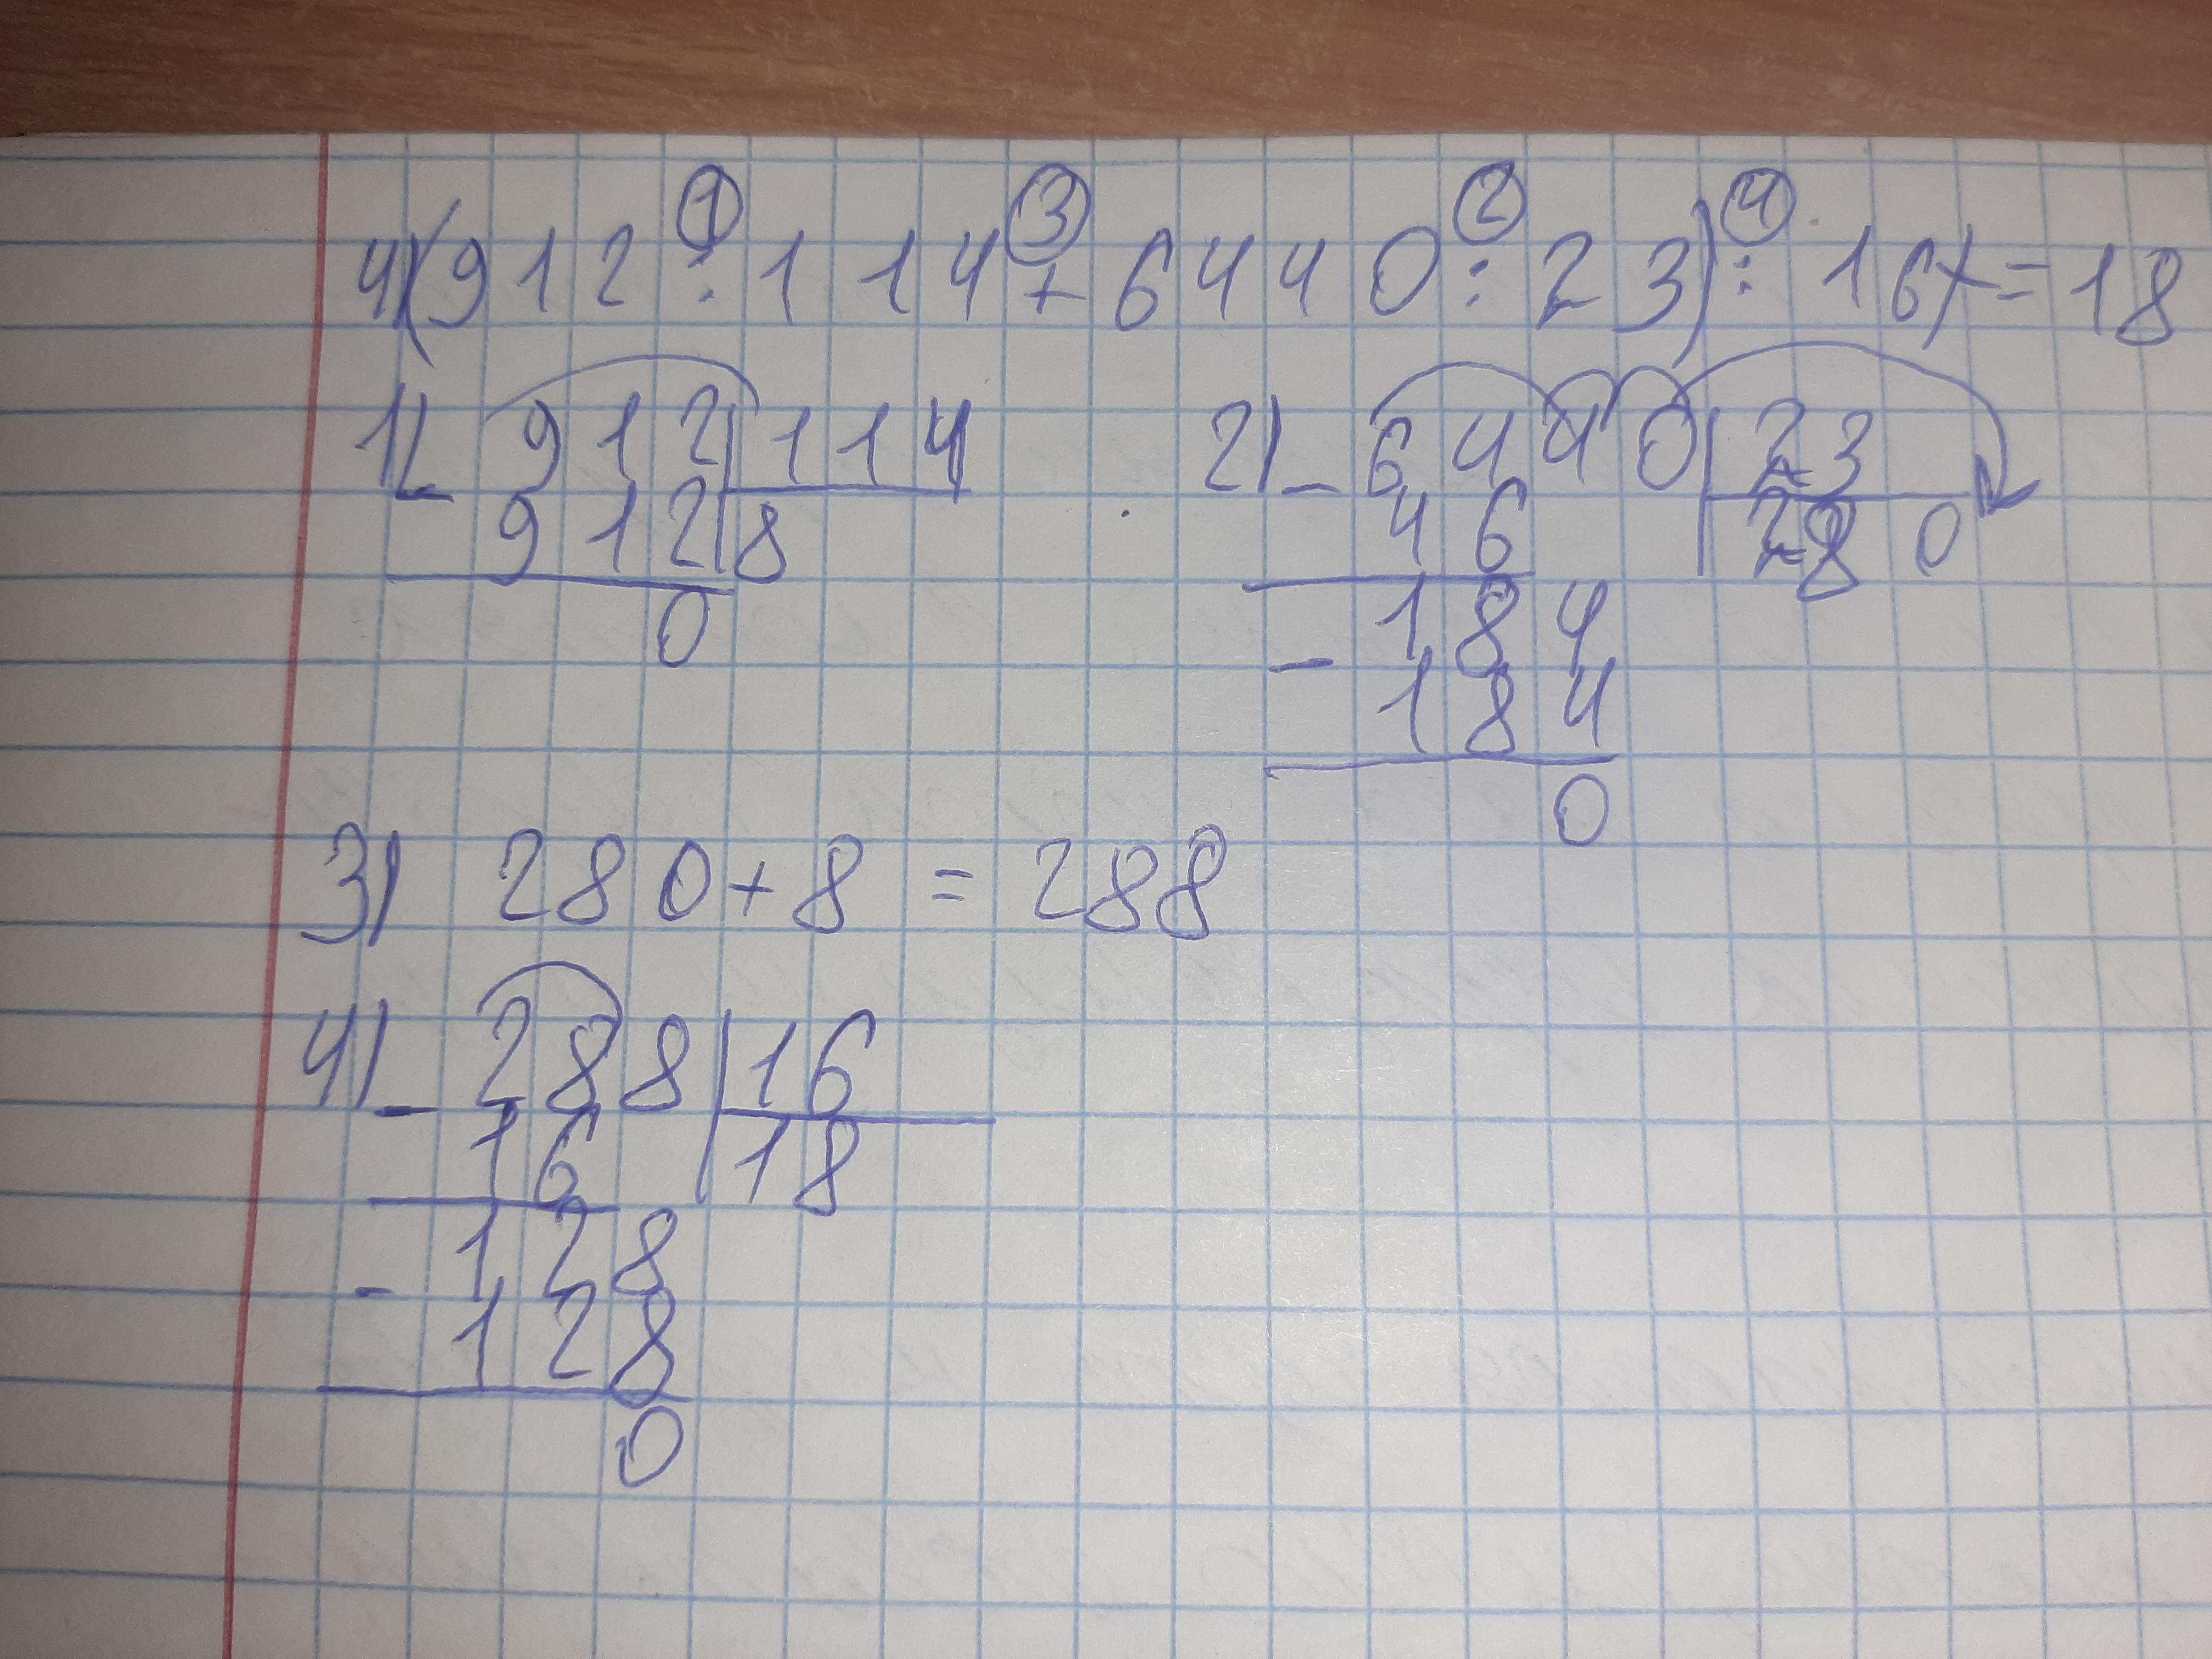 ① ③ ② ④
4) (912 : 114 + 6440 : 23) : 16 = 18
1) - 912 | 114
912 | 8
0
2) - 6440 | 23
46 | 280
184
- 184
0
3) 280 + 8 = 288
4) - 288 | 16
16 | 18
128
- 128
0